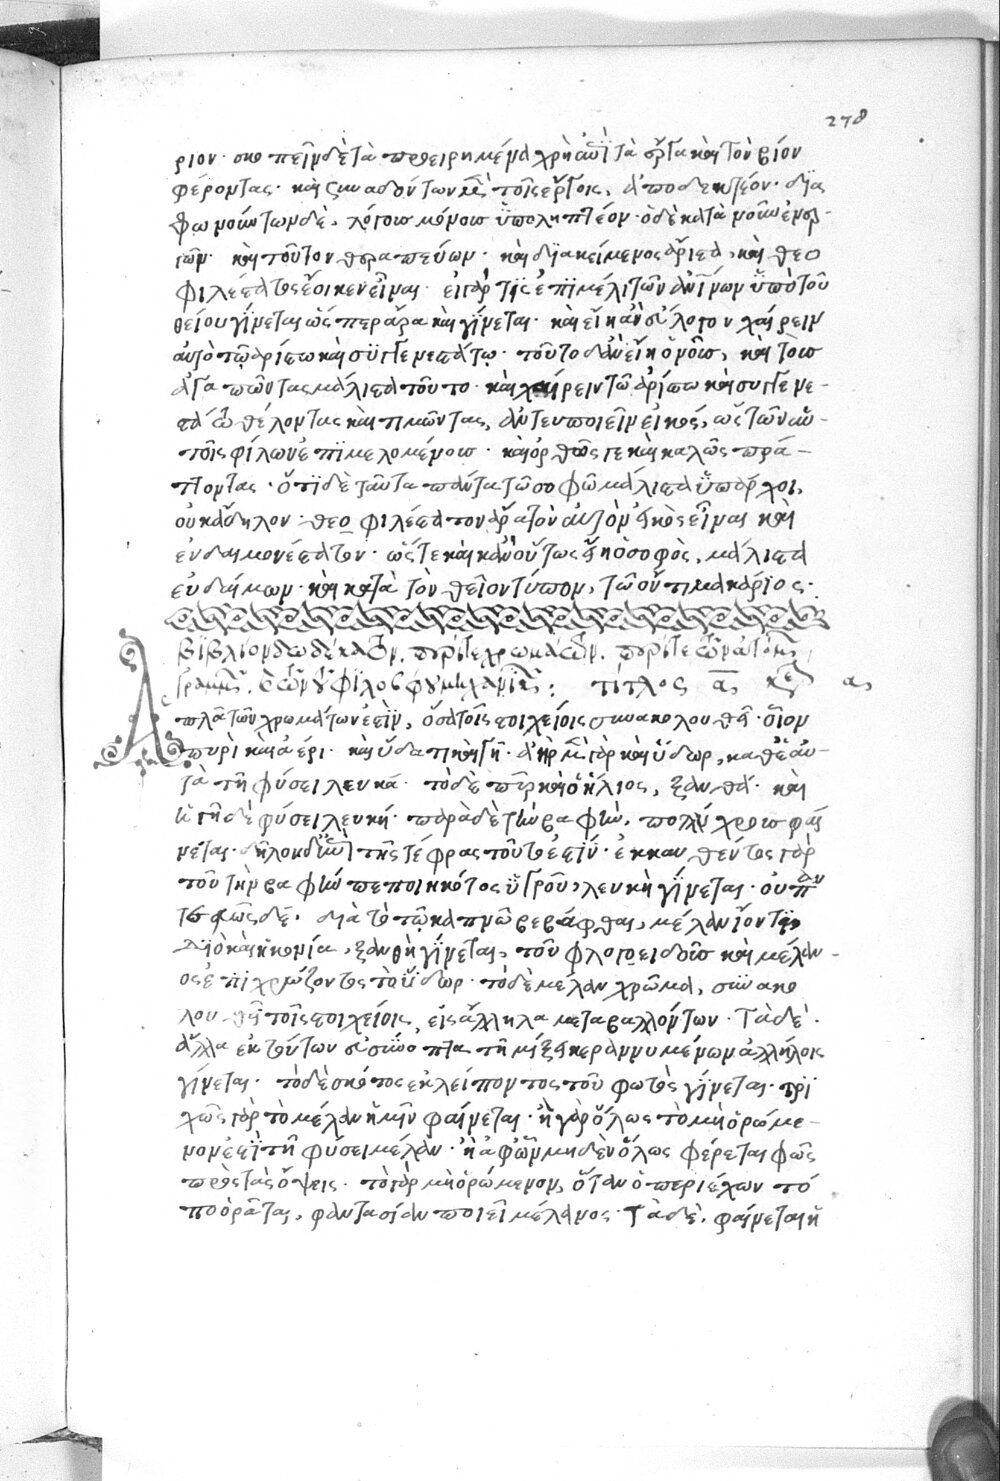 278
ριον· σκοπεῖν δὲ τὰ προειρημένα χρὴ ἐπὶ τὰ ἔργα καὶ τὸν βίον
φέροντας· καὶ συναδόντων μὲν τοῖς ἔργοις, ἀποδεκτέον· δια
φωνούντων δὲ, λόγους μόνους ὑποληπτέον· ὁ δὲ κατὰ νοῦν ἐνερ-
γῶν· καὶ τοῦτον θεραπεύων· καὶ διακείμενος ἄριστα, καὶ θεο
φιλέστατος ἔοικεν εἶναι· εἰ γάρ τις ἐπιμέλι τῶν ἀνίνων ὑπὸ τοῦ
θείου γίνεται ὥσπερ ἄρα καὶ γίνεται· καὶ εἴη ἂν εὔλογον χαίρειν
αὐτὸ τῷ ἀρίστω καὶ συγγενεστάτῳ· τοῦτο δ' ἂν εἴη ὁ νοῦς, καὶ τοὺς
ἀγαπῶντας μάλιστα τοῦτο· καὶ χαίρειν τῶ ἀρίστω καὶ συγγενε-
στάτω θέλοντας καὶ τιμῶντας, ἀντευποιεῖν εἰκὸς, ὡς τῶν αὐ-
τοῖς φίλων ἐπιμελομένους· καὶ ὀρθῶς τε καὶ καλῶς πρά-
ττοντας· ὅτι δὲ ταῦτα πάντα τῶ σοφῶ μάλιστα ὑπάρχοι,
οὐκ ἄδηλον· θεοφιλέστατον ἄρα τὸν αὐτὸν εἰκὸς εἶναι καὶ
εὐδαιμονέστατον· ὥστε καὶ κἂν οὕτως εἴη ὁ σοφὸς, μάλιστα
εὐδαίμων· καὶ κατὰ τὸν θεῖον τύπον, τῶ ὄντι μακάριος·
βιβλίον δωδέκατον. περί τε χρωμάτων. περί τε τῶν ἀτόμων
γραμμῶν. τίτλος α κεφ α
Ἁπλᾶ τῶν χρωμάτων ἐστὶν, ὅσα τοῖς στοιχείοις συνακολουθεῖ· οἷον
πυρὶ καὶ ἀέρι· καὶ ὕδατι καὶ γῆ· ἀὴρ μὲν γὰρ καὶ ὕδωρ, καθ' ἑαυ-
τὰ τῆ φύσει λευκά· τὸ δὲ πῦρ καὶ ὁ ἥλιος, ξανθά· καὶ
ἡ γῆ δέ φύσει λευκή· παρὰ δὲ τὴν βαφὴν, πολύχρους φαί
νεται· δῆλον δ' ἐπὶ τῆς τέφρας τοῦτό ἐστιν· ἐκκαυθέντος γὰρ
τοῦ τὴν βαφὴν πεποιηκότος ὑγροῦ, λευκὴ γίνεται· οὐ παν
τελῶς δέ· διὰ τὸ τῷ καπνῶ βεβάφθαι, μέλανι ὄντι,
διὸ καὶ ἡ κονία, ξανθὴ γίνεται, τοῦ φλογοειδοῦς καὶ μέλαν-
ος ἐπιχρώζοντος τὸ ὕδωρ· τὸ δὲ μέλαν χρῶμα, συνακο
λουθεῖ τοῖς στοιχείοις, εἰς ἄλληλα μεταβαλλόντων· Τὰ δὲ·
ἄλλα ἐκ τούτων εὐσύνοπτα τῆ μίξει κεραννυμένων ἀλλήλοις
γίνεται· τὸ δὲ σκότος ἐκλείποντος τοῦ φωτὸς γίνεται· τρι
χῶς γὰρ τὸ μέλαν ἡμῖν φαίνεται· ἢ γὰρ ὅλως τὸ μὴ ὁρώμε-
νον ἐστὶ τῆ φύσει μέλαν· ἢ ἀφ' ὧν μηδὲν ὅλως φέρεται φῶς
πρὸς τὰς ὄψεις· τὸ γὰρ μὴ ὁρώμενον, ὅταν ὁ περιέχων τό
πος ὁρᾶται, φαντασίαν ποιεῖ μέλανος· Τὰ δὲ, φαίνεται ἡ